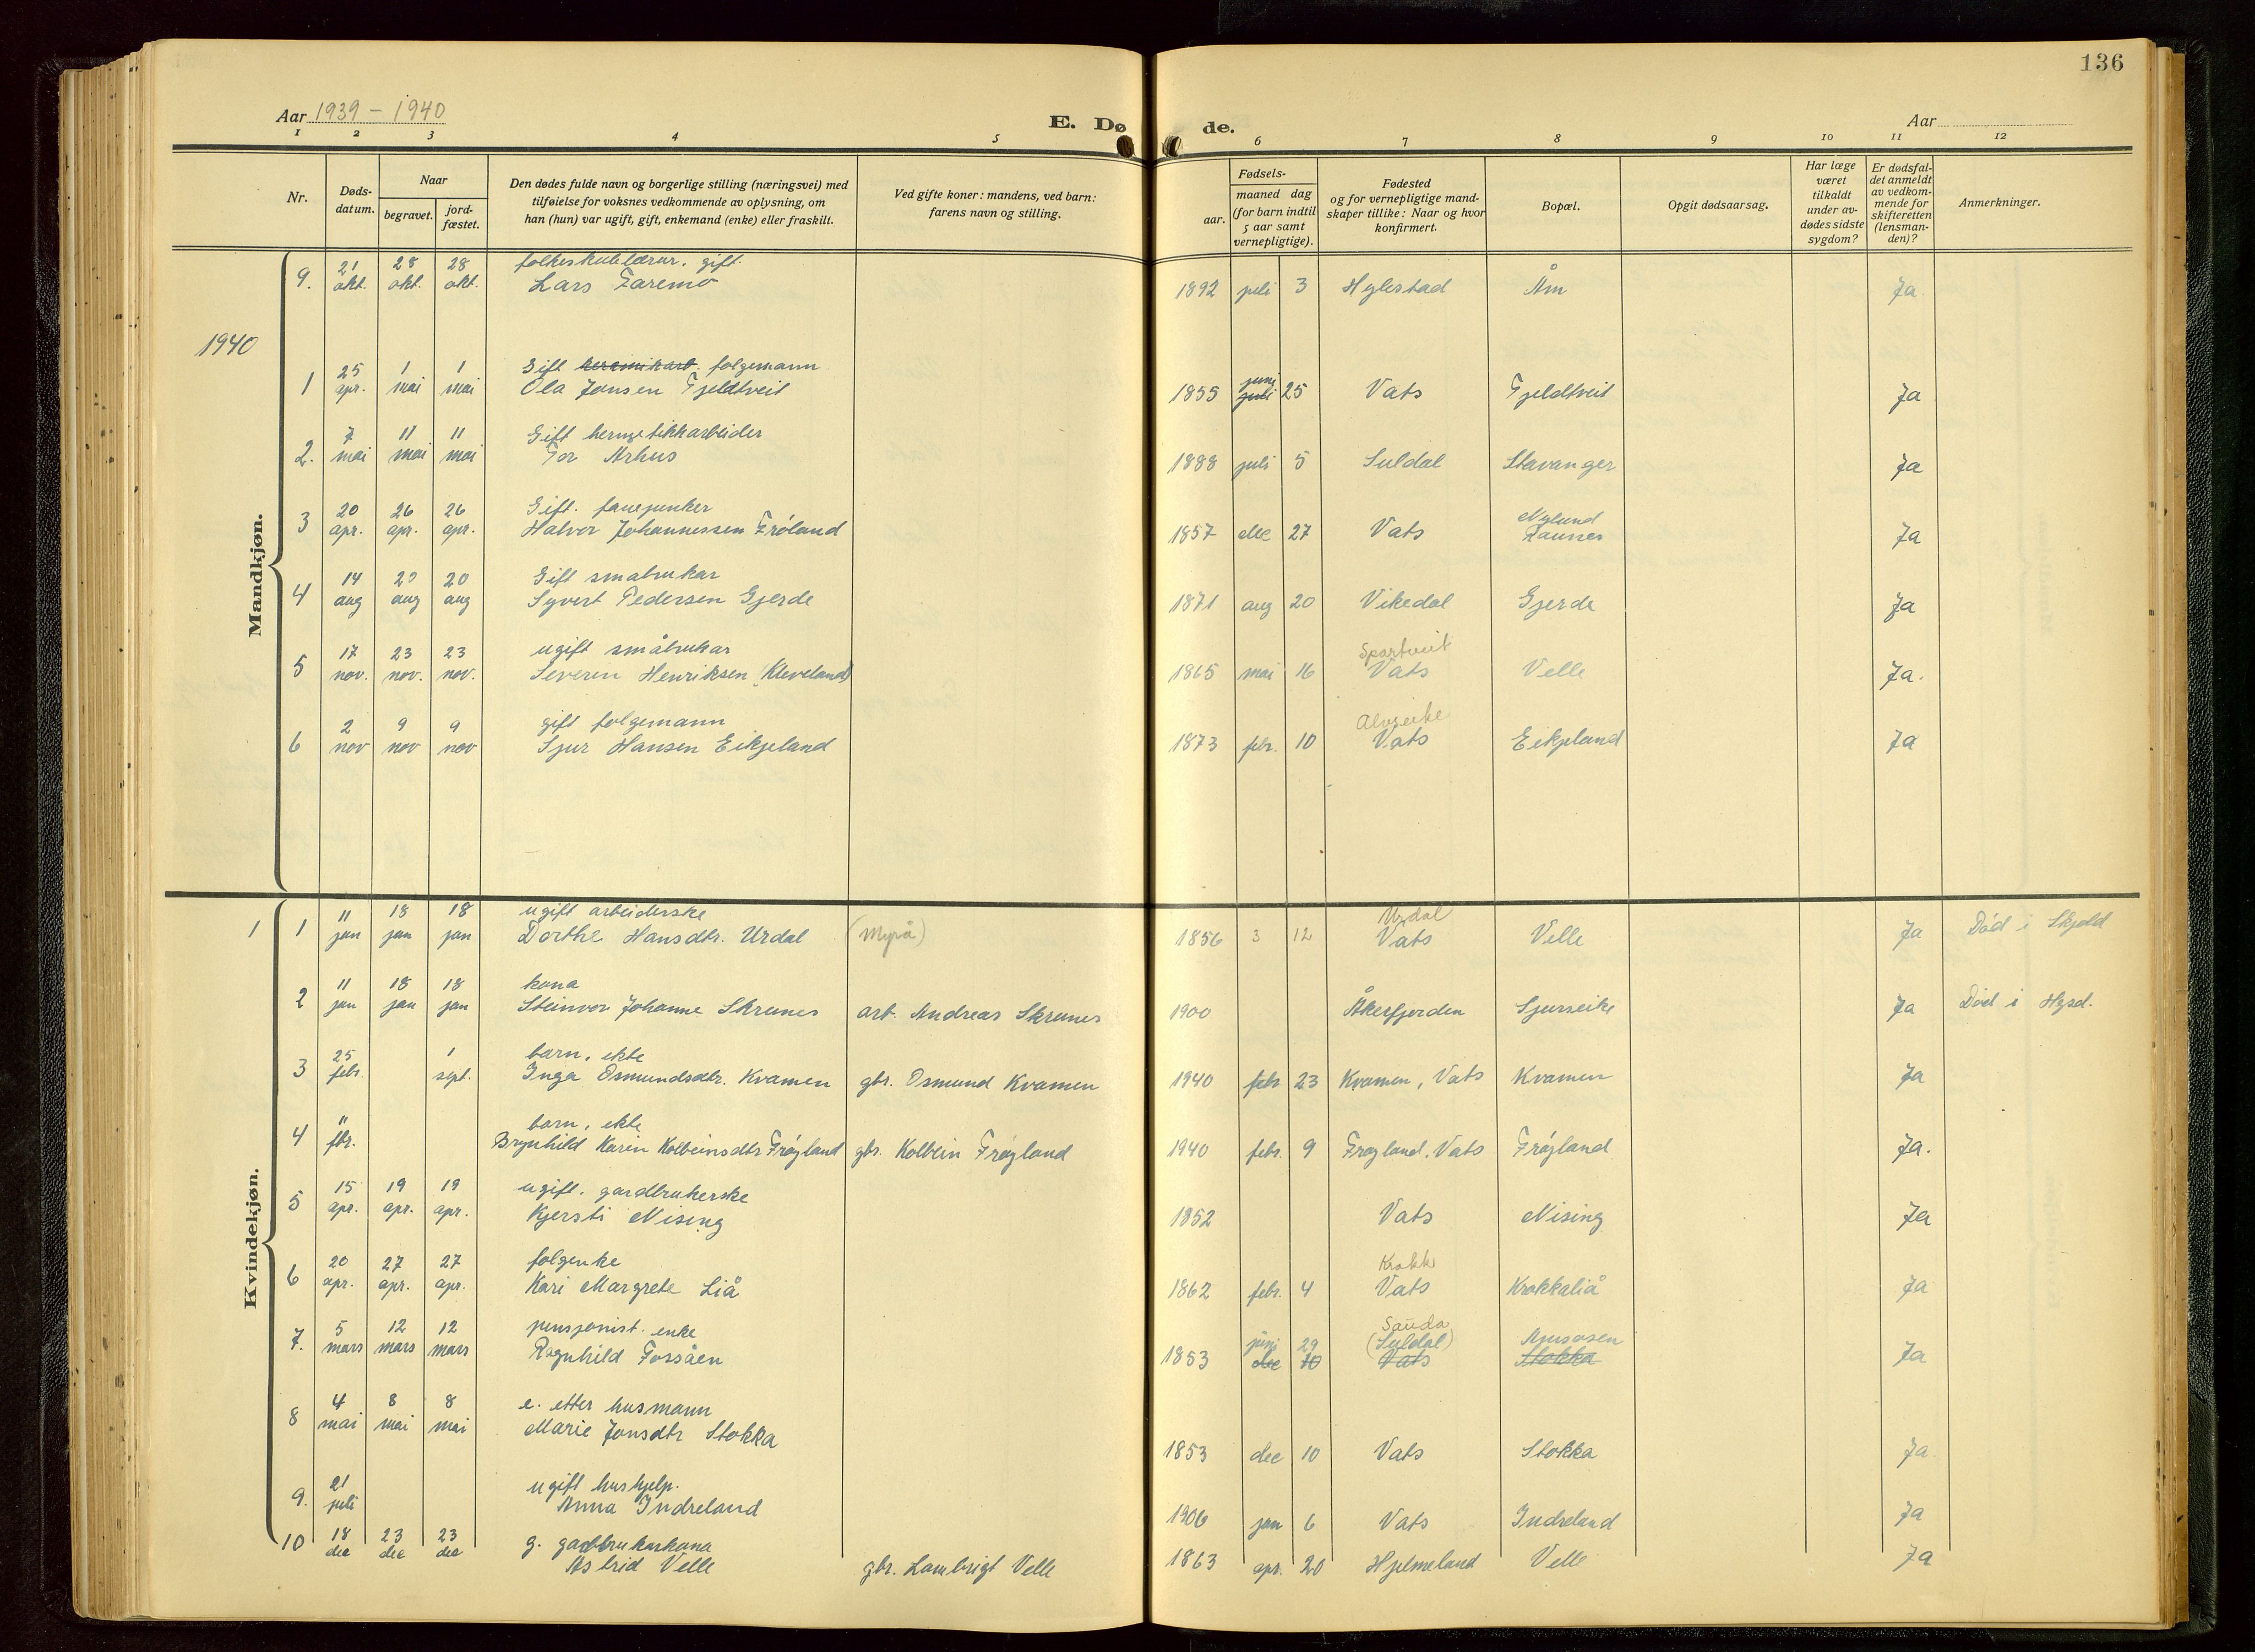 136
Aar 1939 - 1940
E. Døde.
Aar
1 2 3 4 5 6 7 8 9 10 11 12
Nr.
Døds-
datum.
Naar
begravet.
jord-
fæstet.
Den dødes fulde navn og borgerlige stilling (næringsvei) med
tilføielse for voksnes vedkommende av oplysning, om
han (hun) var ugift, gift, enkemand (enke) eller fraskilt.
Ved gifte koner: mandens, ved barn:
farens navn og stilling.
Fødsels-
aar.
maaned dag
(for barn indtil
5 aar samt
vernepligtige).
Fødested
og for vernepligtige mand-
skaper tillike: Naar og hvor
konfirmert.
Bopæl.
Opgit dødsaarsag.
Har læge
været
tilkaldt
under av-
dødes sidste
sygdom?
Er dødsfal-
det anmeldt
av vedkom-
mende for
skifteretten
(lensman-
den)?
Anmerkninger.
Mandkjøn.
21 28 28 folkeskulelærar. gift.
9. okt. okt. okt. Lars Faremo 1892 juli 3 Hylestad Åm Ja
1940
25 1 1 Gift folgemann juni
1 apr. mai mai Ola Jonsen Fjeldtveit 1855 juli 25 Vats Fjeldtveit Ja
7 11 11 Gift hermetikkarbeider
2. mai mai mai Tor Århus 1888 juli 5 Suldal Stavanger Ja
20 26 26 Gift. fanejunker Nylund
3 apr. apr. apr. Halvor Johannessen Frøland 1857 dec 27 Vats Raunes Ja
14 20 20 Gift småbrukar
4 aug aug aug Syvert Pedersen Gjerde 1871 aug 20 Vikedal Gjerde Ja
17 23 23 ugift småbrukar Spartveit
5 nov. nov. nov. Severin Henriksen (Kleveland) 1865 mai 16 Vats Velle Ja.
2 9 9 gift folgemann Alvseike
6 nov nov nov Sjur Hansen Eikjeland 1873 febr. 10 Vats Eikjeland Ja
Kvindekjøn.
11 18 18 ugift arbeiderske Urdal
1 1 jan jan jan Dorthe Hansdtr. Urdal (Myrå) 1856 3 12 Vats Velle Ja Død i Skjold
11 18 18 kona
2 jan jan jan Steinvor Johanne Skrunes arb. Andreas Skrunes 1900 Åkrefjorden Sjurseike Ja Død i Hgsd.
25 1 barn, ekte
3 febr. sept. Inga Osmundsdtr. Kvamen gbr. Osmund Kvamen 1940 febr 23 Kvamen, Vats Kvamen Ja
11 barn, ekte
4 fbr. Brynhild Karin Kolbeinsdtr Frøyland gbr. Kolbein Frøyland 1940 febr. 9 Frøyland, Vats Frøyland Ja.
15 19 19 ugift. gardbrukerske
5 apr. apr. apr. Kjersti Nising 1852 Vats Nising Ja
20 27 27 folgenke Krokk
6 apr. apr. apr. Kari Margrete Liå 1862 febr. 4 Vats Krokkaliå Ja
5 12 12 pensjonist. enke juni 29 Sauda (Suldal)
7. mars mars mars Ragnhild Fossåen 1853 dec 10 Vats Stokka Ja
4 8 8 e. etter husmann
8 mai mai mai Marie Jonsdtr Stokka 1853 dec 10 Vats Stokka Ja
21 ugift hushjelp.
9. juli Anna Indreland 1906 jan 6 Vats Indreland Ja
18 23 23 g. gardbrukarkona
10 dec dec dec Astrid Velle gbr. Lambrigt Velle 1863 apr. 20 Hjelmeland Velle Ja